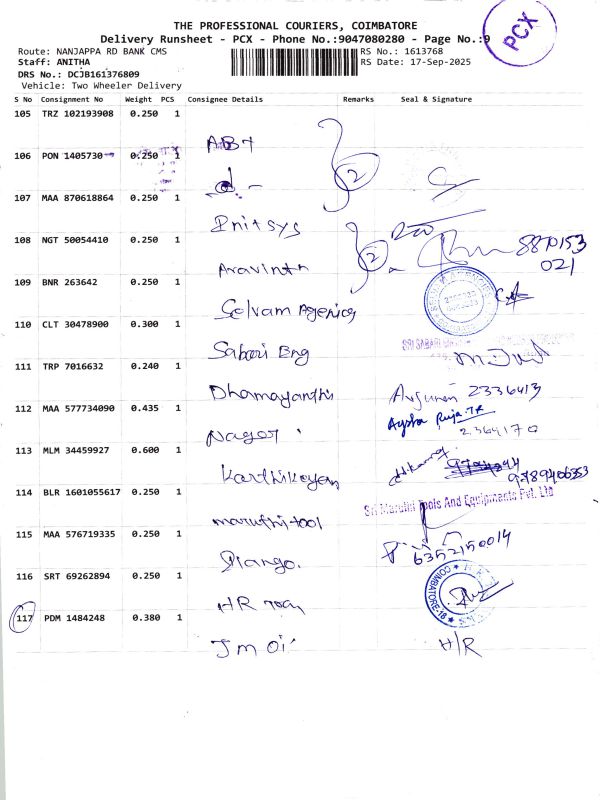 THE PROFESSIONAL COURIERS, COIMBATORE
Delivery Runsheet - PCX - Phone No.:9047080280 - Page No.:9
PCX
Route: NANJAPPA RD BANK CMS RS No.: 1613768
Staff: ANITHA RS Date: 17-Sep-2025
DRS No.: DCJB161376809
Vehicle: Two Wheeler Delivery
S No Consignment No Weight PCS Consignee Details Remarks Seal & Signature
105 TRZ 102193908 0.250 1
ABT
106 PON 1405730 0.250 1
2
107 MAA 870618864 0.250 1
Initsys
108 NGT 50054410 0.250 1
2 8870153
021
Aravinth
109 BNR 263642 0.250 1
Selvam Agencies
110 CLT 30478900 0.300 1
SRI SABARI
Sabari Eng
111 TRP 7016632 0.240 1
Dhamayanthi Arjunan 2336413
112 MAA 577734090 0.435 1
Aysha
Nagor 2364170
113 MLM 34459927 0.600 1
Karthikeyan 9789406353
114 BLR 1601055617 0.250 1
Sri Maruthi Tools And Equipments Pvt. Ltd
maruthi tool
115 MAA 576719335 0.250 1
6352150014
Diango.
116 SRT 69262894 0.250 1
COIMBATORE-18
HR
117 PDM 1484248 0.380 1
Jm oi H/R